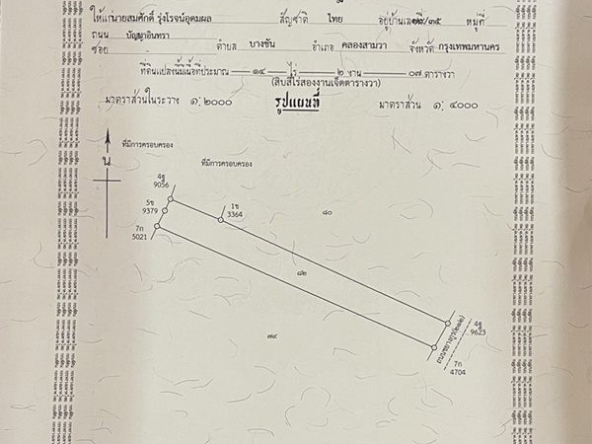 ให้แก่นายสมศักดิ์ รุ่งโรจน์อุดมผล สัญชาติ ไทย อยู่บ้านเลขที่ /๓๕ หมู่ที่
ถนน ปัญญาอินทรา
ซอย ตำบล บางชัน อำเภอ คลองสามวา จังหวัด กรุงเทพมหานคร
ที่ดินแปลงนี้มีเนื้อที่ประมาณ ๑๔ ไร่ ๒ งาน ๐๗ ตารางวา
(สิบสี่ไร่สองงานเจ็ดตารางวา)
มาตราส่วนในระวาง ๑:๒๐๐๐ รูปแผนที่ มาตราส่วน ๑: ๔๐๐๐
น
ที่มีการครอบครอง
ที่มีการครอบครอง
4ฐ
9056
5ช
9379
1ช
3364
7ก
5021
๘๐
๘๒
๗๙
4ฐ
9623
7ก
4704